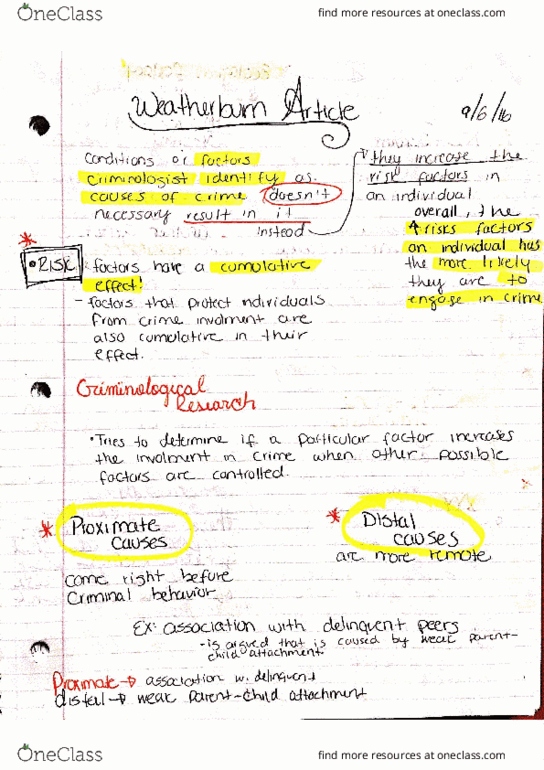 OneClass
find more resources at oneclass.com
Weatherburn Article
9/6/16
conditions or factors
criminologist identify as
causes of crime (doesn't)
necessary result in it
instead
they increase the
risk factors in
an individual
overall, the
↑ risks factors
an individual has
the more likely
they are to
engage in crime
• RISK factors have a cumulative
effect!
- factors that protect individuals
from crime involment are
also cumulative in their
effect.
Criminological
Research
• Tries to determine if a particular factor increases
the involment in crime when other possible
factors are controlled.
* Proximate
causes
come right before
criminal behavior
* Distal
causes
are more remote
Ex: association with delinquent peers
- is argued that is caused by weak parent-
child attachment
Proximate → association w. delinquent
distal → weak parent-child attachment
OneClass
find more resources at oneclass.com